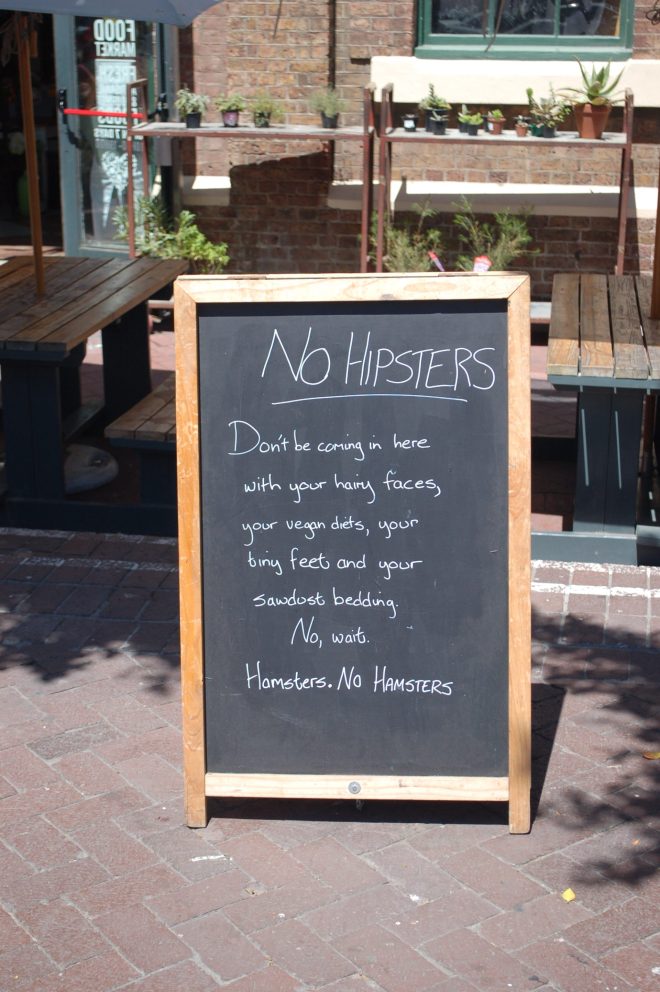 FOOD
MARKET
FRESH
7 DAYS
No HIPSTERS
Don't be coming in here
with your hairy faces,
your vegan diets, your
tiny feet and your
sawdust bedding.
No, wait.
Hamsters. No HAMSTERS